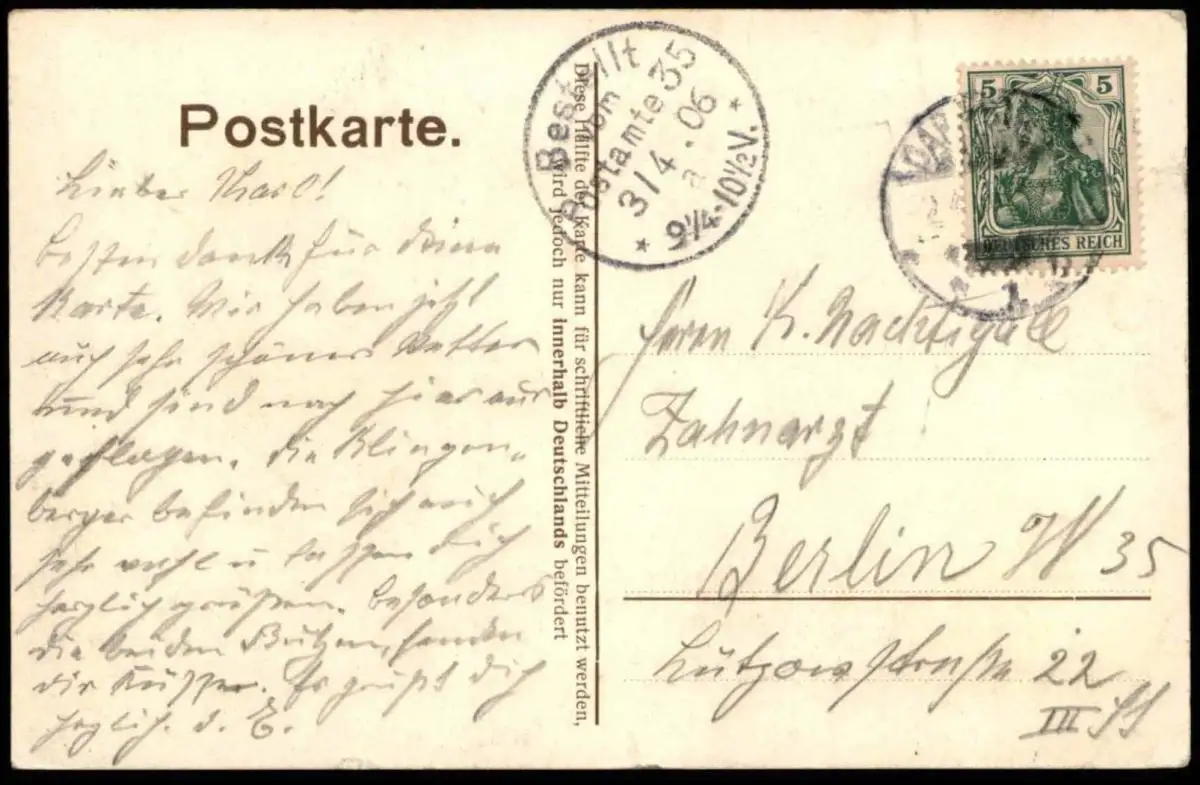 Postkarte.
Lieber Karl!
Besten Dank für Deine
Karte. Wir haben jetzt
auch sehr schönes Wetter
und sind noch hier aus
geflogen. Die Klingen-
berger befinden sich auch
sehr wohl u lassen Dich
herzlich grüßen. Besonders
die beiden senden
dir Küsse. Es grüßt Dich
herzlich. d. E.
Diese Hälfte der Karte kann für schriftliche Mitteilungen benutzt werden,
wird jedoch nur innerhalb Deutschlands befördert
Bestellt
vom
Postamte 35
3/4.06
a
* 9¼-10½V. *
5 5
DEUTSCHES REICH
1
Herrn K. Nachtigall
Zahnarzt
Berlin W 35
Lützowstraße 22
III